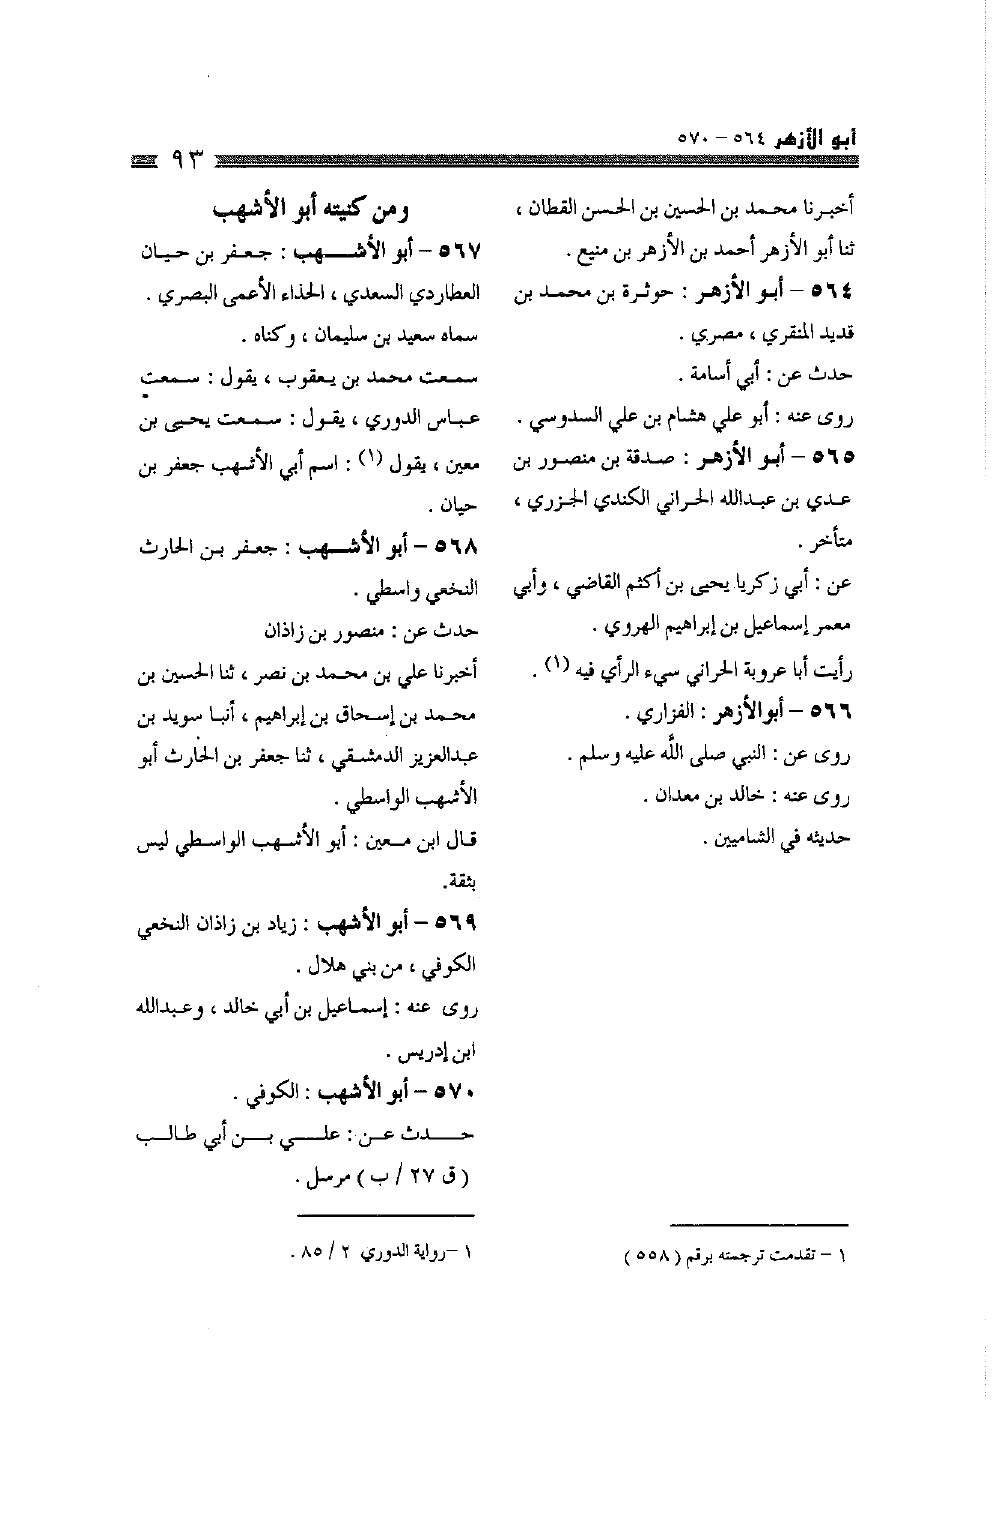 أبو الأزهر ٥٦٤ – ٥٧٠
٩٣
أخبرنا محمد بن الحسين بن الحسن القطان ،
ثنا أبو الأزهر أحمد بن الأزهر بن منيع .
٥٦٤ – أبو الأزهر : حوثرة بن محمد بن
قديد المنقري ، مصري .
حدث عن : أبي أسامة .
روى عنه : أبو علي هشام بن علي السدوسي .
٥٦٥ – أبو الأزهر : صدقة بن منصور بن
عدي بن عبدالله الحراني الكندي الجزري ،
متأخر .
عن : أبي زكريا يحيى بن أكثم القاضي ، وأبي
معمر إسماعيل بن إبراهيم الهروي .
رأيت أبا عروبة الحراني سيء الرأي فيه (١) .
٥٦٦ – أبوالأزهر : الفزاري .
روى عن : النبي صلى الله عليه وسلم .
روى عنه : خالد بن معدان .
حديثه في الشاميين .
١ – تقدمت ترجمته برقم ( ٥٥٨ )
ومن كنيته أبو الأشهب
٥٦٧ – أبو الأشهب : جعفر بن حيان
العطاردي السعدي ، الحذاء الأعمى البصري .
سماه سعيد بن سليمان ، وكناه .
سمعت محمد بن يعقوب ، يقول : سمعت
عباس الدوري ، يقول : سمعت يحيى بن
معين ، يقول (١) : اسم أبي الأشهب جعفر بن
حيان .
٥٦٨ – أبو الأشهب : جعفر بن الحارث
النخعي واسطي .
حدث عن : منصور بن زاذان
أخبرنا علي بن محمد بن نصر ، ثنا الحسين بن
محمد بن إسحاق بن إبراهيم ، أنبا سويد بن
عبدالعزيز الدمشقي ، ثنا جعفر بن الحارث أبو
الأشهب الواسطي .
قال ابن معين : أبو الأشهب الواسطي ليس
بثقة.
٥٦٩ – أبو الأشهب : زياد بن زاذان النخعي
الكوفي ، من بني هلال .
روى عنه : إسماعيل بن أبي خالد ، وعبدالله
ابن إدريس .
٥٧٠ – أبو الأشهب : الكوفي .
حدث عن : علي بن أبي طالب
( ق ٢٧ / ب ) مرسل .
١ –رواية الدوري ٢ / ٨٥ .